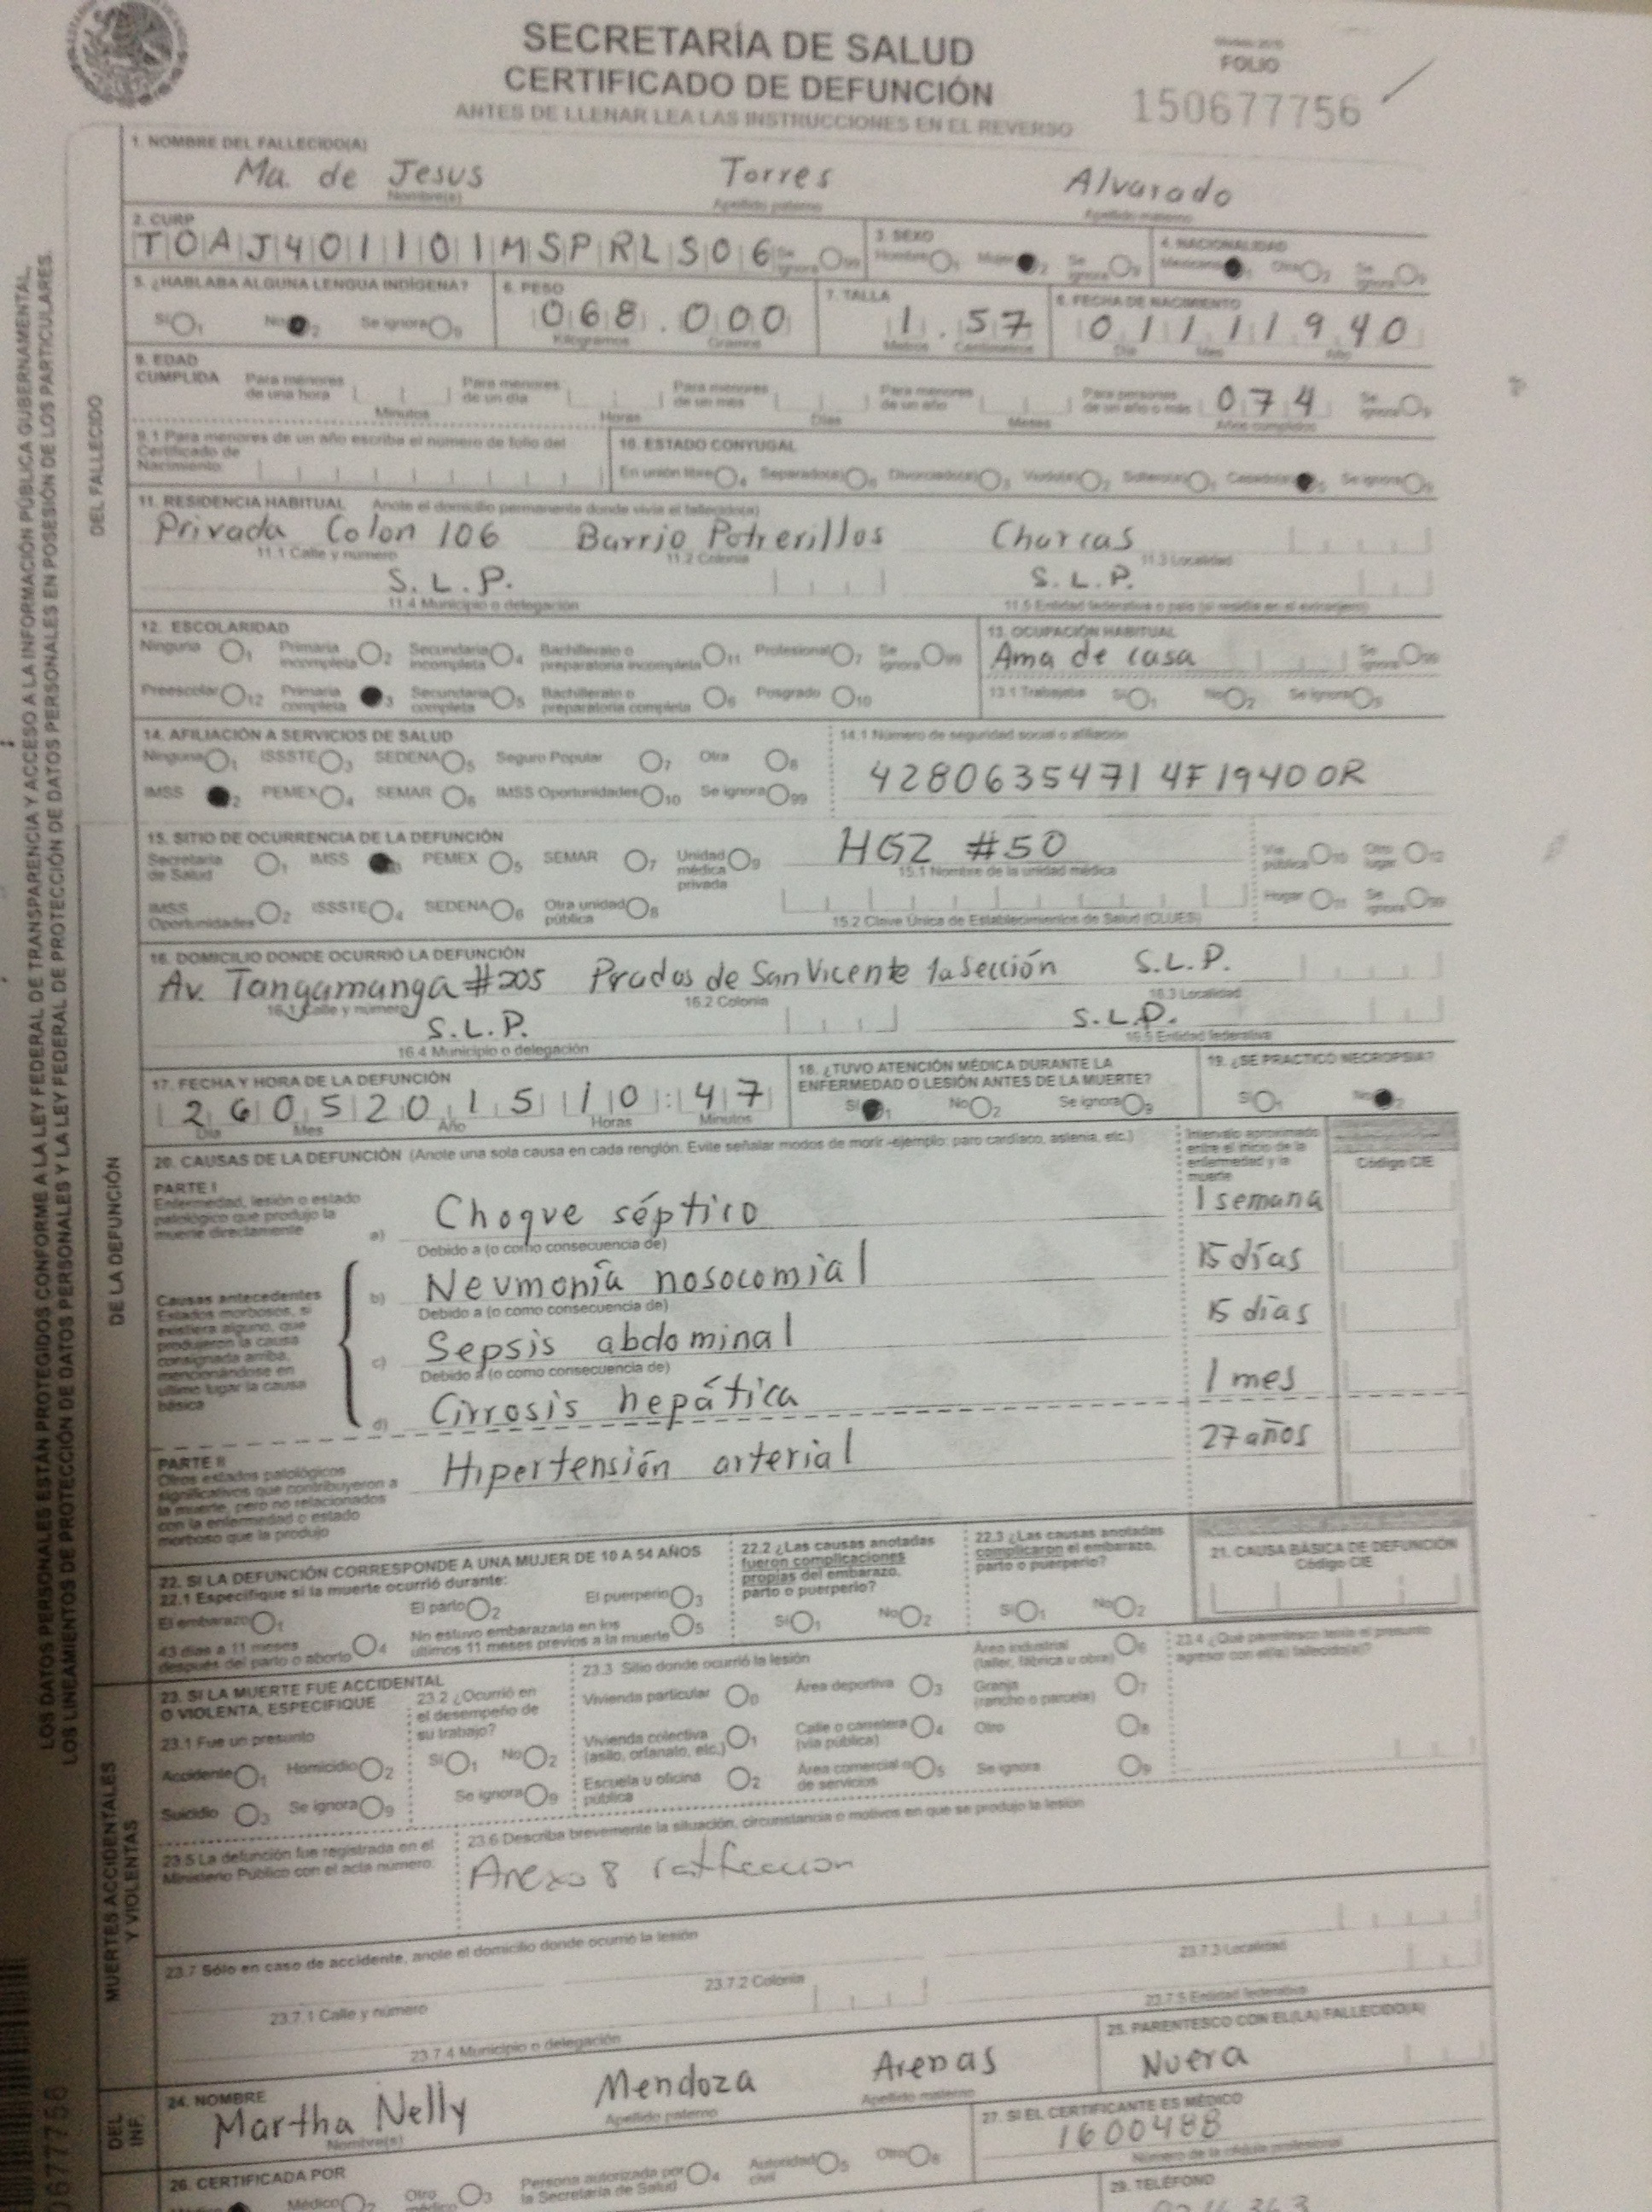 SECRETARÍA DE SALUD
CERTIFICADO DE DEFUNCIÓN
ANTES DE LLENAR LEA LAS INSTRUCCIONES EN EL REVERSO
FOLIO
150677756
1. NOMBRE DEL FALLECIDO(A)
Ma. de Jesus Torres Alvarado
Nombre(s) Apellido paterno Apellido materno
2. CURP
TOAJ401101MSPRLS06 Se ignora 99
3. SEXO
Hombre 1 Mujer 2 Se ignora 9
4. NACIONALIDAD
Mexicana 1 Otra 2 Se ignora 9
5. ¿HABLABA ALGUNA LENGUA INDÍGENA?
Sí 1 No 2 Se ignora 9
6. PESO
068.000
Kilogramos Gramos
7. TALLA
1.57
Metros Centímetros
8. FECHA DE NACIMIENTO
01111940
Día Mes Año
9. EDAD CUMPLIDA
Para menores de una hora Minutos
Para menores de un día Horas
Para menores de un mes Días
Para menores de un año Meses
Para personas de un año o más 074 Años cumplidos
Se ignora 9
9.1 Para menores de un año escriba el número de folio del Certificado de Nacimiento
10. ESTADO CONYUGAL
En unión libre 4 Separado(a) 6 Divorciado(a) 3 Viudo(a) 2 Soltero(a) 1 Casado(a) 5 Se ignora 9
11. RESIDENCIA HABITUAL Anote el domicilio permanente donde vivía el fallecido(a)
Privada Colon 106 Barrio Potrerillos Charcas
11.1 Calle y número 11.2 Colonia 11.3 Localidad
S.L.P. S.L.P.
11.4 Municipio o delegación 11.5 Entidad federativa o país (si residía en el extranjero)
12. ESCOLARIDAD
Ninguna 1 Primaria incompleta 2 Secundaria incompleta 4 Bachillerato o preparatoria incompleta 11 Profesional 7 Se ignora 99
Preescolar 12 Primaria completa 3 Secundaria completa 5 Bachillerato o preparatoria completa 6 Posgrado 10
13. OCUPACIÓN HABITUAL
Ama de casa Se ignora 99
13.1 Trabajaba Sí 1 No 2 Se ignora 9
14. AFILIACIÓN A SERVICIOS DE SALUD
Ninguna 1 ISSSTE 3 SEDENA 5 Seguro Popular 7 Otra 8
IMSS 2 PEMEX 4 SEMAR 6 IMSS Oportunidades 10 Se ignora 99
14.1 Número de seguridad social o afiliación
4280635471 4F1940OR
15. SITIO DE OCURRENCIA DE LA DEFUNCIÓN
Secretaría de Salud 1 IMSS 3 PEMEX 5 SEMAR 7 Unidad médica privada 9
IMSS Oportunidades 2 ISSSTE 4 SEDENA 6 Otra unidad pública 8
HGZ #50
15.1 Nombre de la unidad médica
15.2 Clave Única de Establecimientos de Salud (CLUES)
Vía pública 10 Otro lugar 12
Hogar 11 Se ignora 99
16. DOMICILIO DONDE OCURRIÓ LA DEFUNCIÓN
Av. Tangamanga #205 Prados de San Vicente 1a Sección S.L.P.
16.1 Calle y número 16.2 Colonia 16.3 Localidad
S.L.P. S.L.P.
16.4 Municipio o delegación 16.5 Entidad federativa
17. FECHA Y HORA DE LA DEFUNCIÓN
26052015 10:47
Día Mes Año Horas Minutos
18. ¿TUVO ATENCIÓN MÉDICA DURANTE LA ENFERMEDAD O LESIÓN ANTES DE LA MUERTE?
Sí 1 No 2 Se ignora 9
19. ¿SE PRACTICÓ NECROPSIA?
Sí 1 No 2
20. CAUSAS DE LA DEFUNCIÓN (Anote una sola causa en cada renglón. Evite señalar modos de morir -ejemplo: paro cardíaco, astenia, etc.)
Intervalo aproximado entre el inicio de la enfermedad y la muerte
Código CIE
PARTE I
Enfermedad, lesión o estado patológico que produjo la muerte directamente
a) Choque séptico 1 semana
Debido a (o como consecuencia de)
Causas antecedentes
Estados morbosos, si existiera alguno, que produjeron la causa consignada arriba, mencionándose en último lugar la causa básica
b) Neumonía nosocomial 15 días
Debido a (o como consecuencia de)
c) Sepsis abdominal 15 días
Debido a (o como consecuencia de)
d) Cirrosis hepática 1 mes
PARTE II
Otros estados patológicos significativos que contribuyeron a la muerte, pero no relacionados con la enfermedad o estado morboso que la produjo
Hipertensión arterial 27 años
21. CAUSA BÁSICA DE DEFUNCIÓN
Código CIE
22. SI LA DEFUNCIÓN CORRESPONDE A UNA MUJER DE 10 A 54 AÑOS
22.1 Especifique si la muerte ocurrió durante:
El embarazo 1 El parto 2 El puerperio 3
43 días a 11 meses después del parto o aborto 4 No estuvo embarazada en los últimos 11 meses previos a la muerte 5
22.2 ¿Las causas anotadas fueron complicaciones propias del embarazo, parto o puerperio?
Sí 1 No 2
22.3 ¿Las causas anotadas complicaron el embarazo, parto o puerperio?
Sí 1 No 2
23. SI LA MUERTE FUE ACCIDENTAL O VIOLENTA, ESPECIFIQUE
23.1 Fue un presunto
Accidente 1 Homicidio 2
Suicidio 3 Se ignora 9
23.2 ¿Ocurrió en el desempeño de su trabajo?
Sí 1 No 2
Se ignora 9
23.3 Sitio donde ocurrió la lesión
Vivienda particular 0 Área deportiva 3 Área industrial (taller, fábrica u obra) 6
Vivienda colectiva (asilo, orfanato, etc.) 1 Calle o carretera (vía pública) 4 Granja (rancho o parcela) 7
Escuela u oficina pública 2 Área comercial o de servicios 5 Otro 8
Se ignora 9
23.4 ¿Qué parentesco tenía el presunto agresor con el(la) fallecido(a)?
23.5 La defunción fue registrada en el Ministerio Público con el acta número:
23.6 Describa brevemente la situación, circunstancia o motivos en que se produjo la lesión
Anexo 8
23.7 Sólo en caso de accidente, anote el domicilio donde ocurrió la lesión
23.7.1 Calle y número 23.7.2 Colonia 23.7.3 Localidad
23.7.4 Municipio o delegación 23.7.5 Entidad federativa
24. NOMBRE
Martha Nelly Mendoza Arenas
Nombre(s) Apellido paterno Apellido materno
25. PARENTESCO CON EL(LA) FALLECIDO(A)
Nuera
26. CERTIFICADA POR
Médico 2 Otro médico 3 Persona autorizada por la Secretaría de Salud 4 Autoridad civil 5 Otro 8
27. SI EL CERTIFICANTE ES MÉDICO
1600488
Número de la cédula profesional
29. TELÉFONO
DEL FALLECIDO
DE LA DEFUNCIÓN
MUERTES ACCIDENTALES Y VIOLENTAS
DEL INF.
LOS DATOS PERSONALES ESTÁN PROTEGIDOS CONFORME A LA LEY FEDERAL DE TRANSPARENCIA Y ACCESO A LA INFORMACIÓN PÚBLICA GUBERNAMENTAL,
LOS LINEAMIENTOS DE PROTECCIÓN DE DATOS PERSONALES Y LA LEY FEDERAL DE PROTECCIÓN DE DATOS PERSONALES EN POSESIÓN DE LOS PARTICULARES.